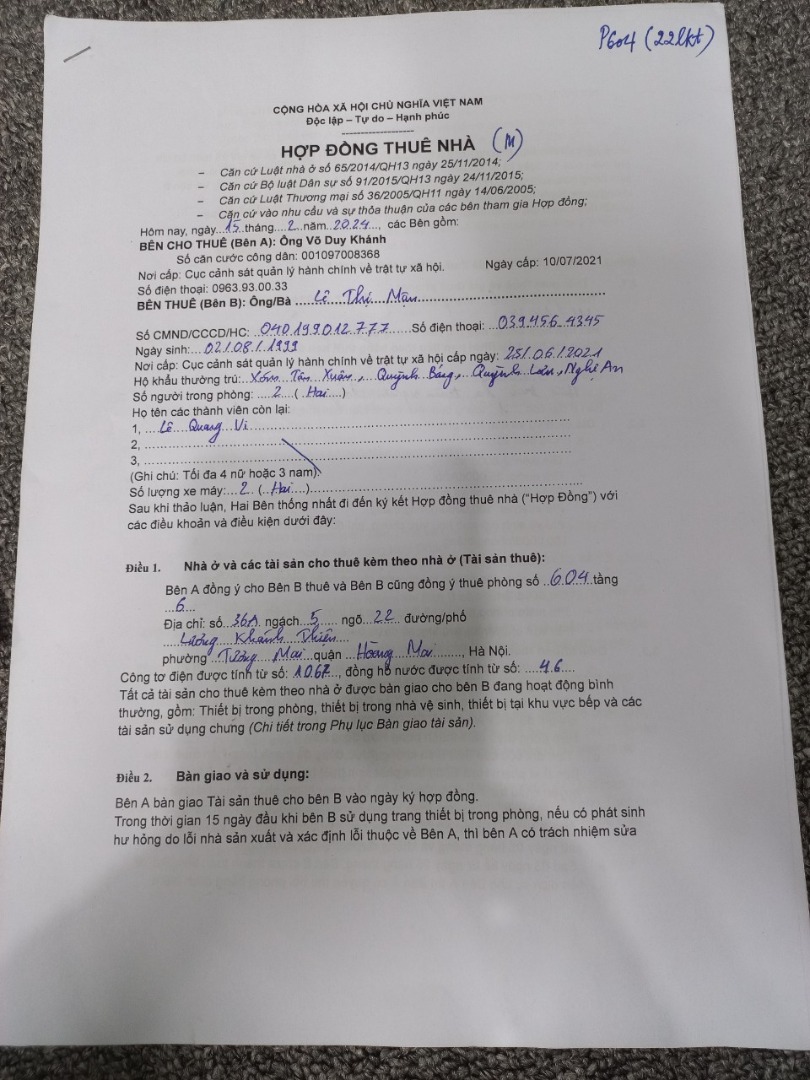 P604 (22lkt)
CỘNG HÒA XÃ HỘI CHỦ NGHĨA VIỆT NAM
Độc lập – Tự do – Hạnh phúc
--------------------
HỢP ĐỒNG THUÊ NHÀ (M)
– Căn cứ Luật nhà ở số 65/2014/QH13 ngày 25/11/2014;
– Căn cứ Bộ luật Dân sự số 91/2015/QH13 ngày 24/11/2015;
– Căn cứ Luật Thương mại số 36/2005/QH11 ngày 14/06/2005;
– Căn cứ vào nhu cầu và sự thỏa thuận của các bên tham gia Hợp đồng;
Hôm nay, ngày...15..tháng....2..năm..2024..., các Bên gồm:
BÊN CHO THUÊ (Bên A): Ông Võ Duy Khánh
Số căn cước công dân: 001097008368
Nơi cấp: Cục cảnh sát quản lý hành chính về trật tự xã hội. Ngày cấp: 10/07/2021
Số điện thoại: 0963.93.00.33
BÊN THUÊ (Bên B): Ông/Bà .....Lê Thị Mận..............................
Số CMND/CCCD/HC: ..040199012777......Số điện thoại: ...039.456.4345
Ngày sinh:...02/08/1999
Nơi cấp: Cục cảnh sát quản lý hành chính về trật tự xã hội cấp ngày: 25/06/2021
Hộ khẩu thường trú:..Xóm Tân Xuân, Quỳnh Bảng, Quỳnh Lưu, Nghệ An
Số người trong phòng: .....2....( ..Hai....)
Họ tên các thành viên còn lại:
1, ....Lê Quang Vi..............................
2, ..............................
3, ..............................
(Ghi chú: Tối đa 4 nữ hoặc 3 nam).
Số lượng xe máy:...2.. (..Hai....)..............................
Sau khi thảo luận, Hai Bên thống nhất đi đến ký kết Hợp đồng thuê nhà (“Hợp Đồng”) với
các điều khoản và điều kiện dưới đây:
Điều 1. Nhà ở và các tài sản cho thuê kèm theo nhà ở (Tài sản thuê):
Bên A đồng ý cho Bên B thuê và Bên B cũng đồng ý thuê phòng số ..604..tầng
...6...
Địa chỉ: số...36A. ngách...5...... ngõ...22.. đường/phố
.....Lương Khánh Thiện....
phường ..Tương Mai..quận ...Hoàng Mai........, Hà Nội.
Công tơ điện được tính từ số: .1067..., đồng hồ nước được tính từ số: ....46....
Tất cả tài sản cho thuê kèm theo nhà ở được bàn giao cho bên B đang hoạt động bình
thường, gồm: Thiết bị trong phòng, thiết bị trong nhà vệ sinh, thiết bị tại khu vực bếp và các
tài sản sử dụng chung (Chi tiết trong Phụ lục Bàn giao tài sản).
Điều 2. Bàn giao và sử dụng:
Bên A bàn giao Tài sản thuê cho bên B vào ngày ký hợp đồng.
Trong thời gian 15 ngày đầu khi bên B sử dụng trang thiết bị trong phòng, nếu có phát sinh
hư hỏng do lỗi nhà sản xuất và xác định lỗi thuộc về Bên A, thì bên A có trách nhiệm sửa